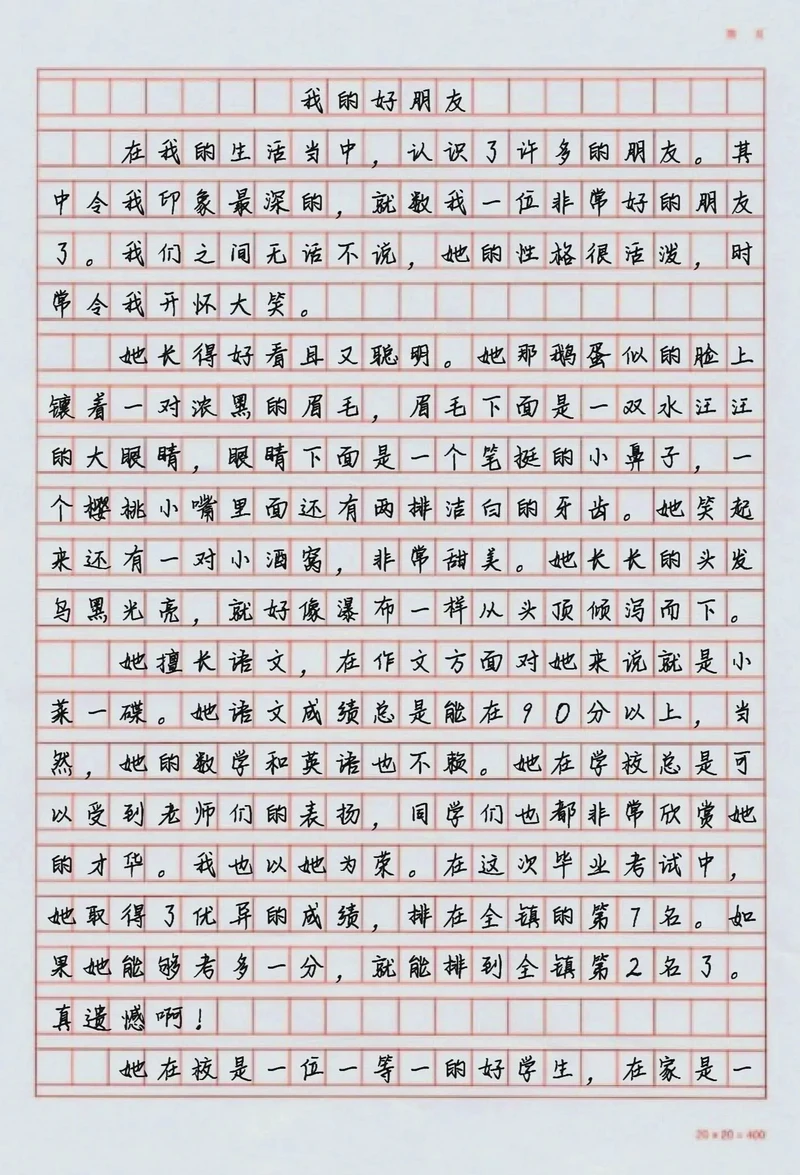 我的好朋友
在我的生活当中，认识了许多的朋友。其
中令我印象最深的，就数我一位非常好的朋友
了。我们之间无话不说，她的性格很活泼，时
常令我开怀大笑。
她长得好看且又聪明。她那鹅蛋似的脸上
镶着一对浓黑的眉毛，眉毛下面是一双水汪汪
的大眼睛，眼睛下面是一个笔挺的小鼻子，一
个樱桃小嘴里面还有两排洁白的牙齿。她笑起
来还有一对小酒窝，非常甜美。她长长的头发
乌黑光亮，就好像瀑布一样从头顶倾泻而下。
她擅长语文，在作文方面对她来说就是小
菜一碟。她语文成绩总是能在90分以上，当
然，她的数学和英语也不赖。她在学校总是可
以受到老师们的表扬，同学们也都非常欣赏她
的才华。我也以她为荣。在这次毕业考试中，
她取得了优异的成绩，排在全镇的第7名。如
果她能够考多一分，就能排到全镇第2名了。
真遗憾啊！
她在校是一位一等一的好学生，在家是一
20×20=400